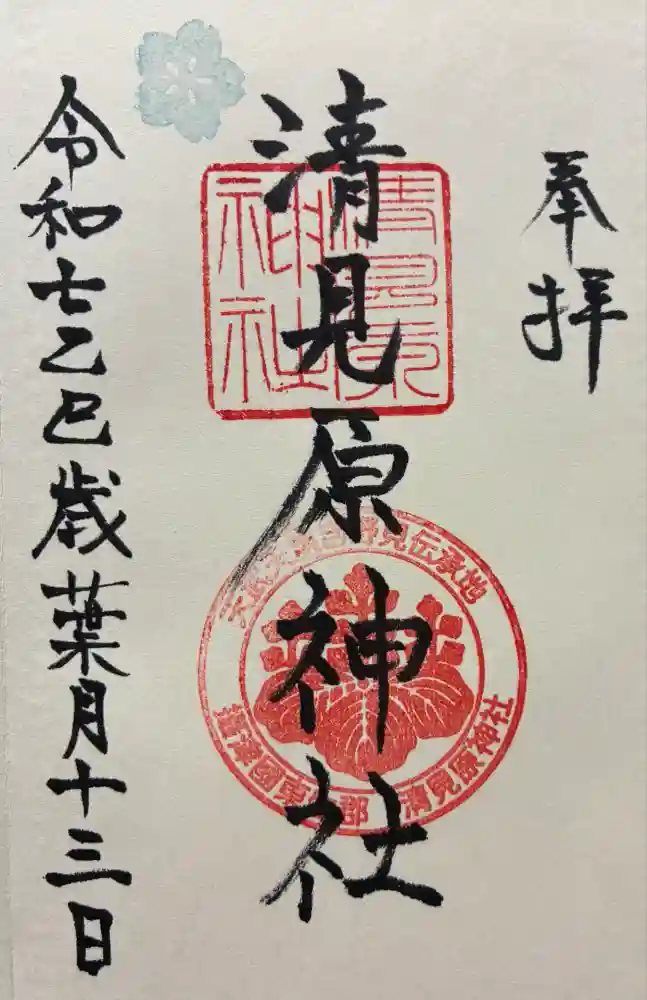 奉拝
清見原神社
清見原神社
伝承地
清見原神社
令和七乙巳歳葉月十三日